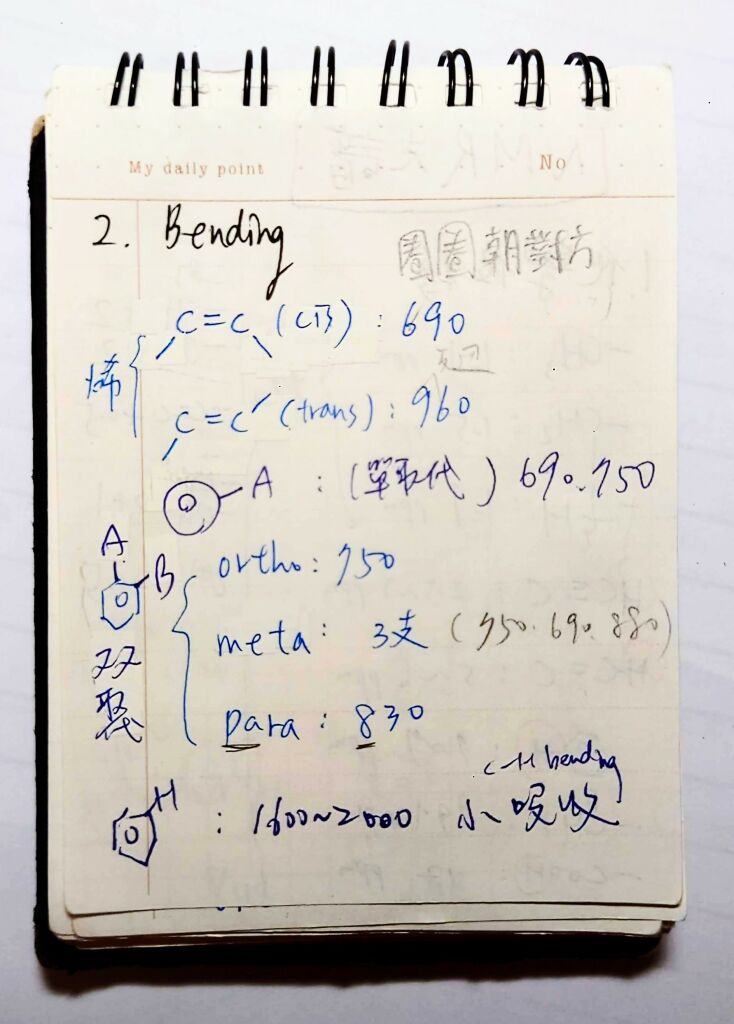 My daily point No
2. Bending
圈圈朝對方
烯
C=C (cis) : 690
C=C (trans) : 960
A : (單取代) 690.750
A
B
双取代
ortho: 750
meta: 3支 (750.690.880)
para: 830
C-H bending
H : 1600~2000 小吸收